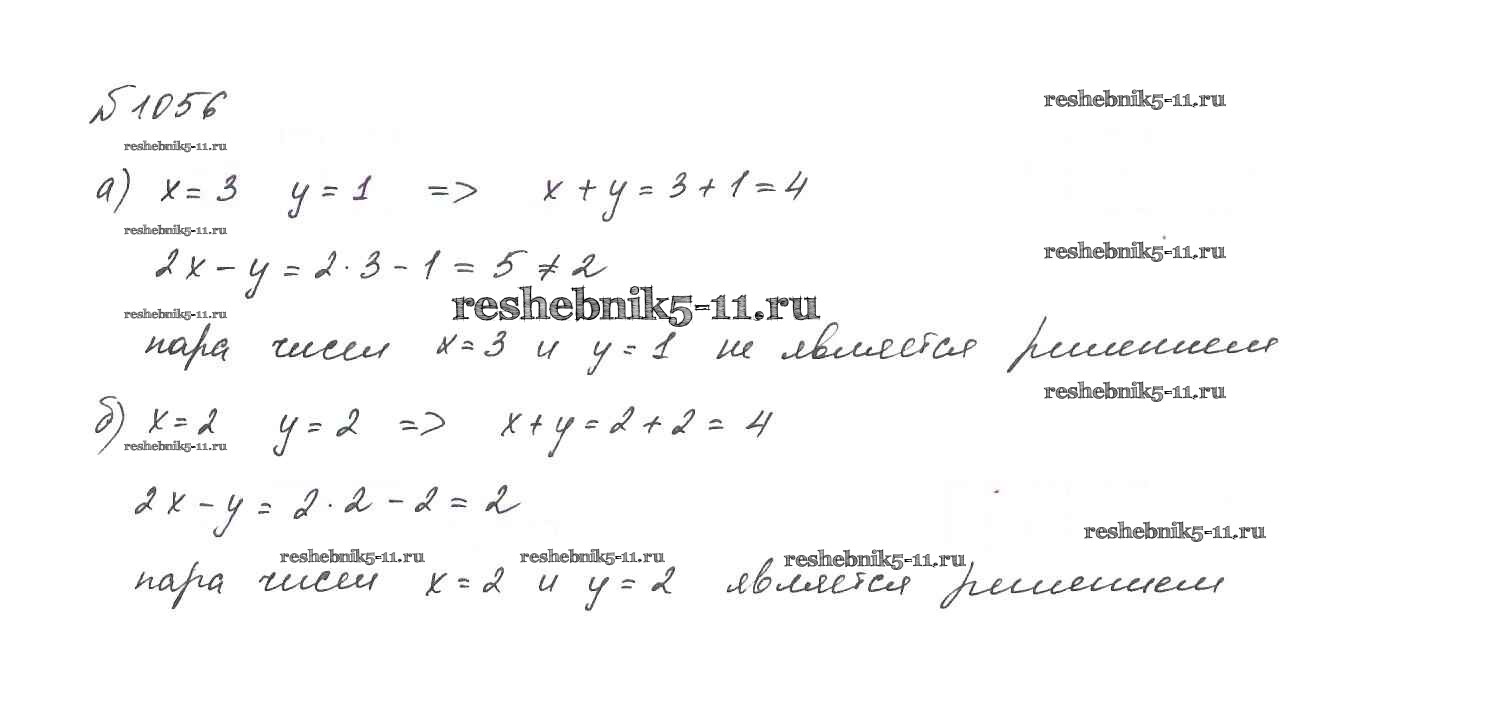 №1056
reshebnik5-11.ru
reshebnik5-11.ru
а) x = 3 y = 1 => x + y = 3 + 1 = 4
reshebnik5-11.ru
2x - y = 2 · 3 - 1 = 5 ≠ 2
reshebnik5-11.ru
reshebnik5-11.ru
reshebnik5-11.ru
пара чисел x = 3 и y = 1 не является решением
reshebnik5-11.ru
б) x = 2 y = 2 => x + y = 2 + 2 = 4
reshebnik5-11.ru
2x - y = 2 · 2 - 2 = 2
reshebnik5-11.ru
reshebnik5-11.ru reshebnik5-11.ru reshebnik5-11.ru
пара чисел x = 2 и y = 2 является решением